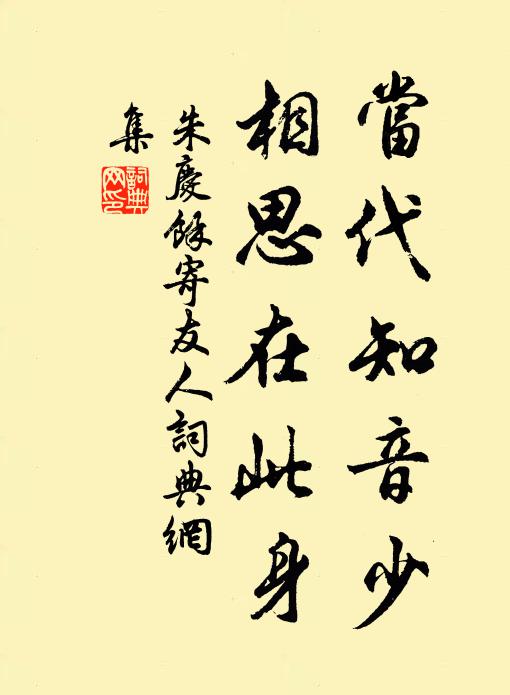 當代知音少
相思在此身
朱慶餘寄友人詞典網
集
詞典
网印